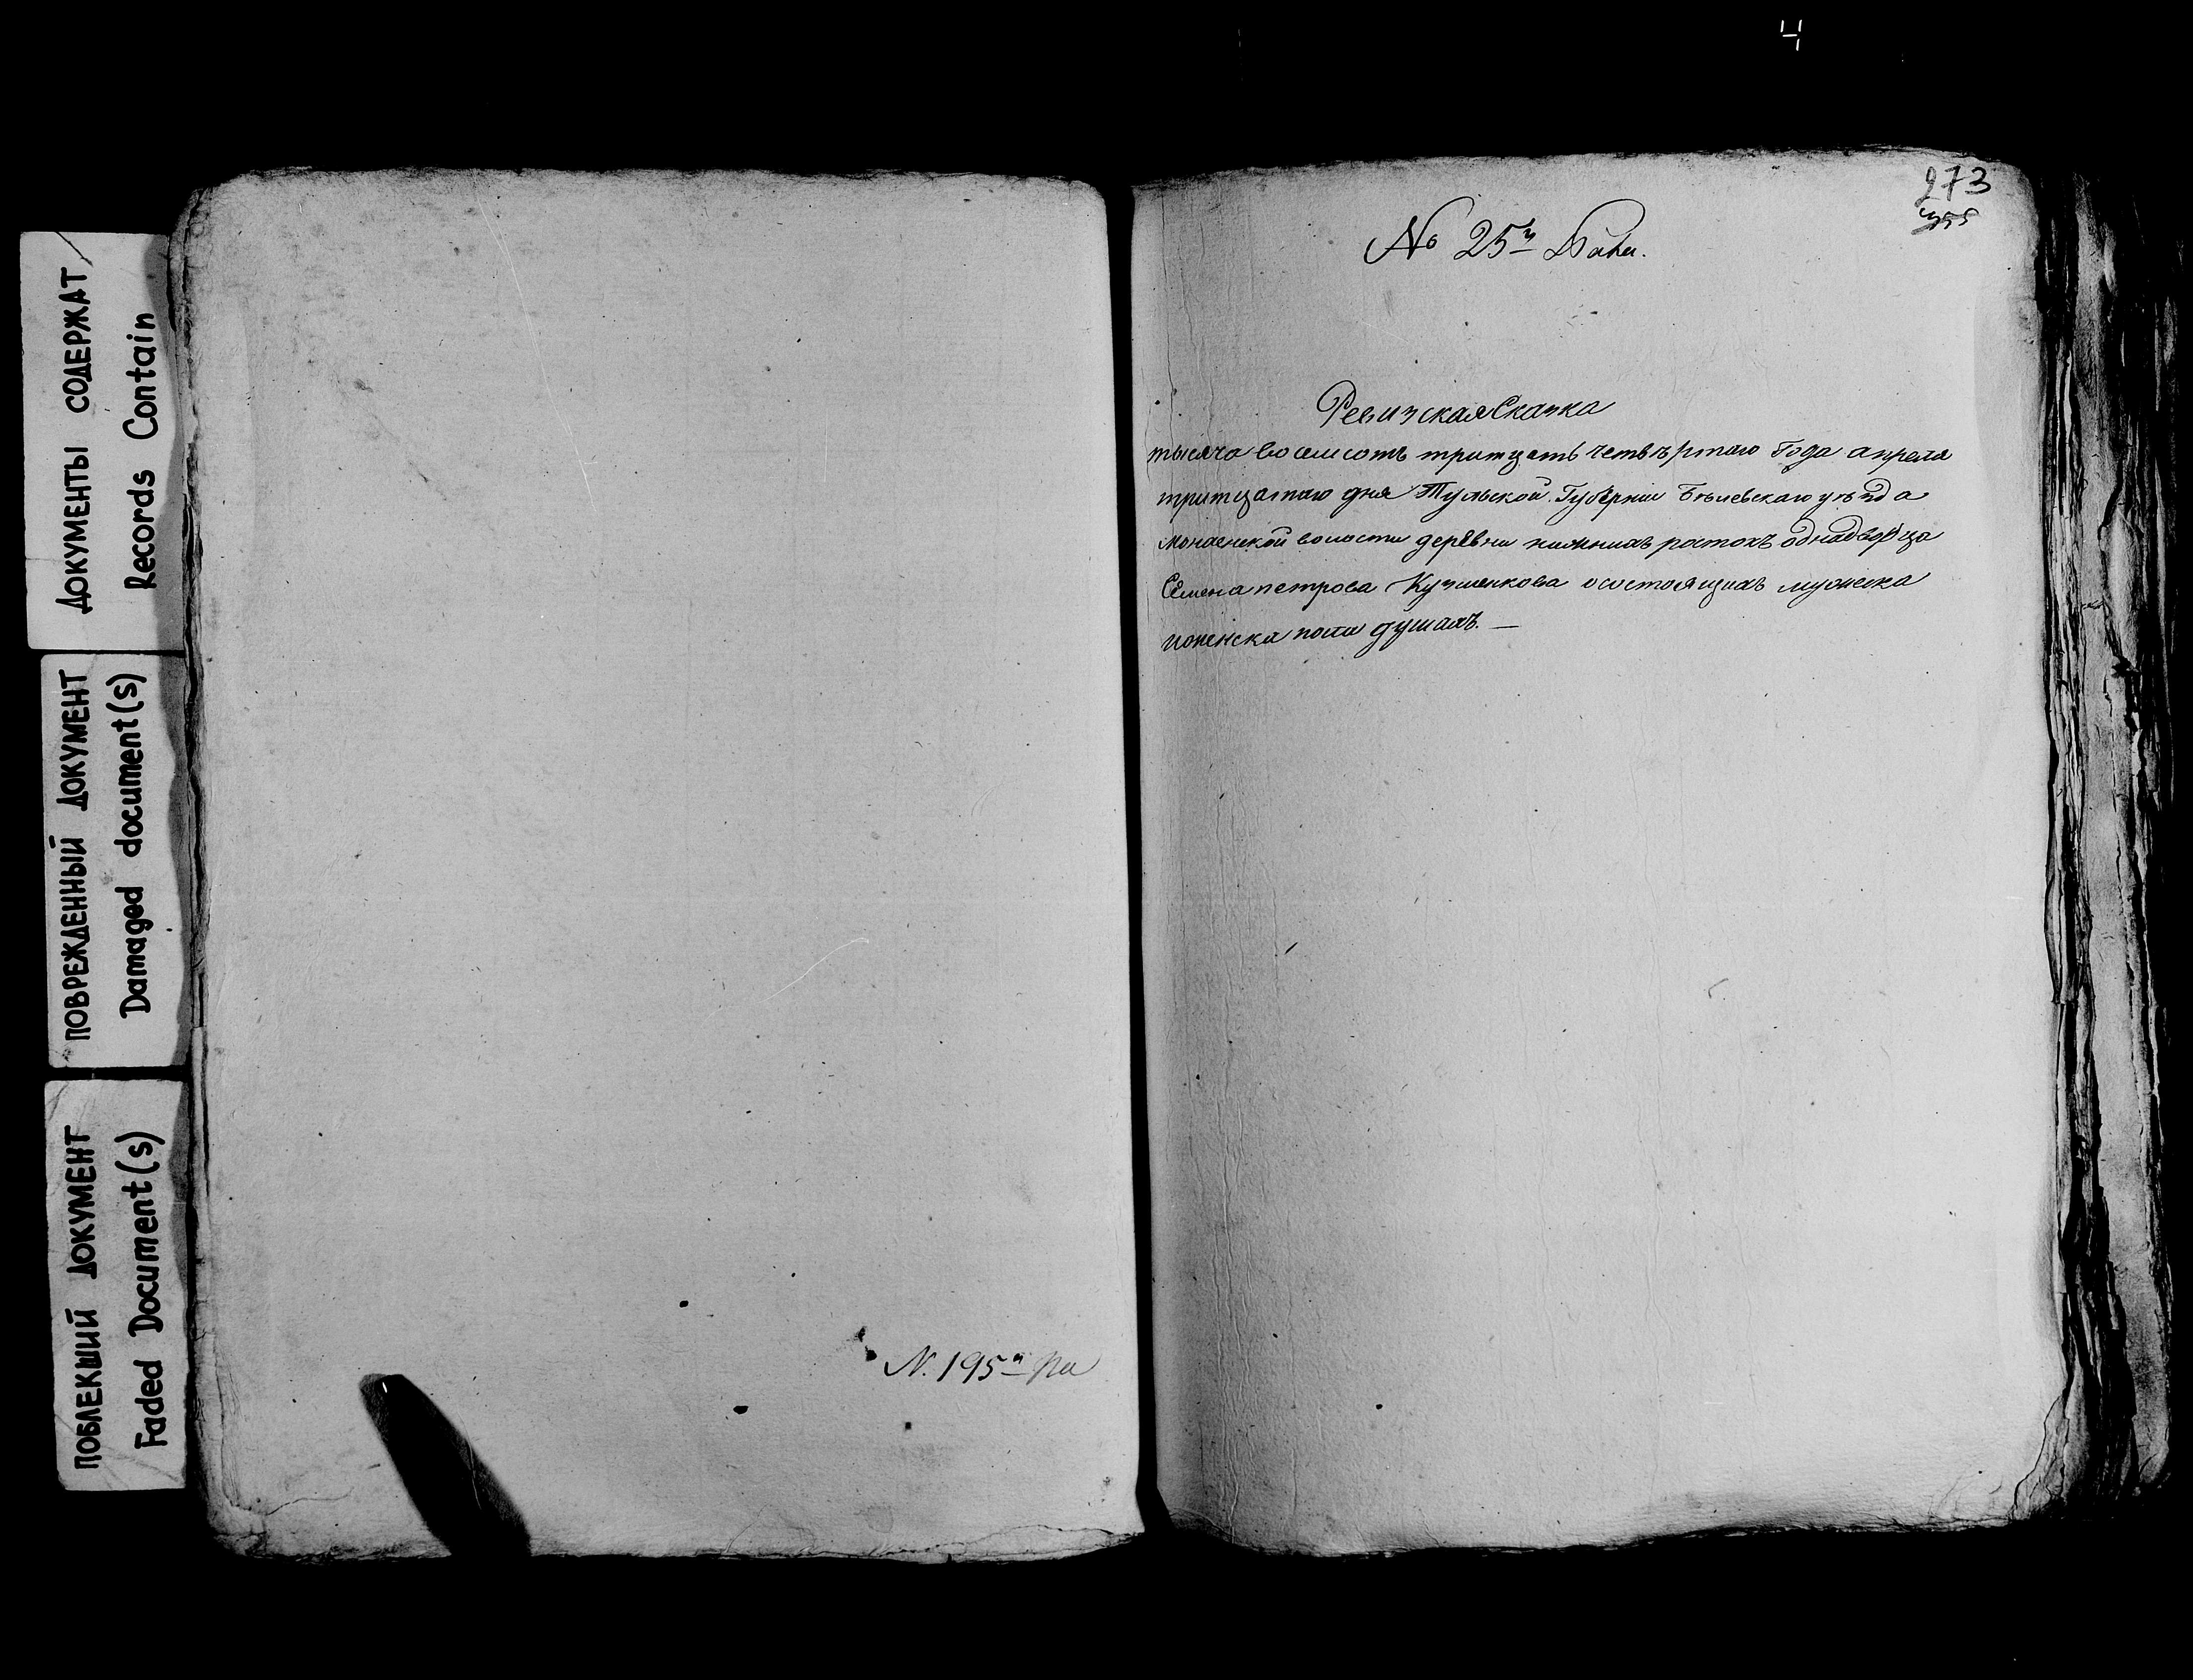 4
ДОКУМЕНТЫ СОДЕРЖАТ
Records Contain
ПОВРЕЖДЕННЫЙ ДОКУМЕНТ
Damaged document(s)
ПОБЛЕКШИЙ ДОКУМЕНТ
Faded Document(s)
N. 195
273
№ 25
Ревизская Сказка
тысяча восемсотъ тритцать четвѣртаго Года апреля
тритцатаго дня Тульской Губернии Бѣлевскаго уѣзда
Монаенской волости деревни нижнихъ ростокъ однадворца
Семена петрова Кузменкова осостоящихъ мужеска
иженска пола душахъ. —